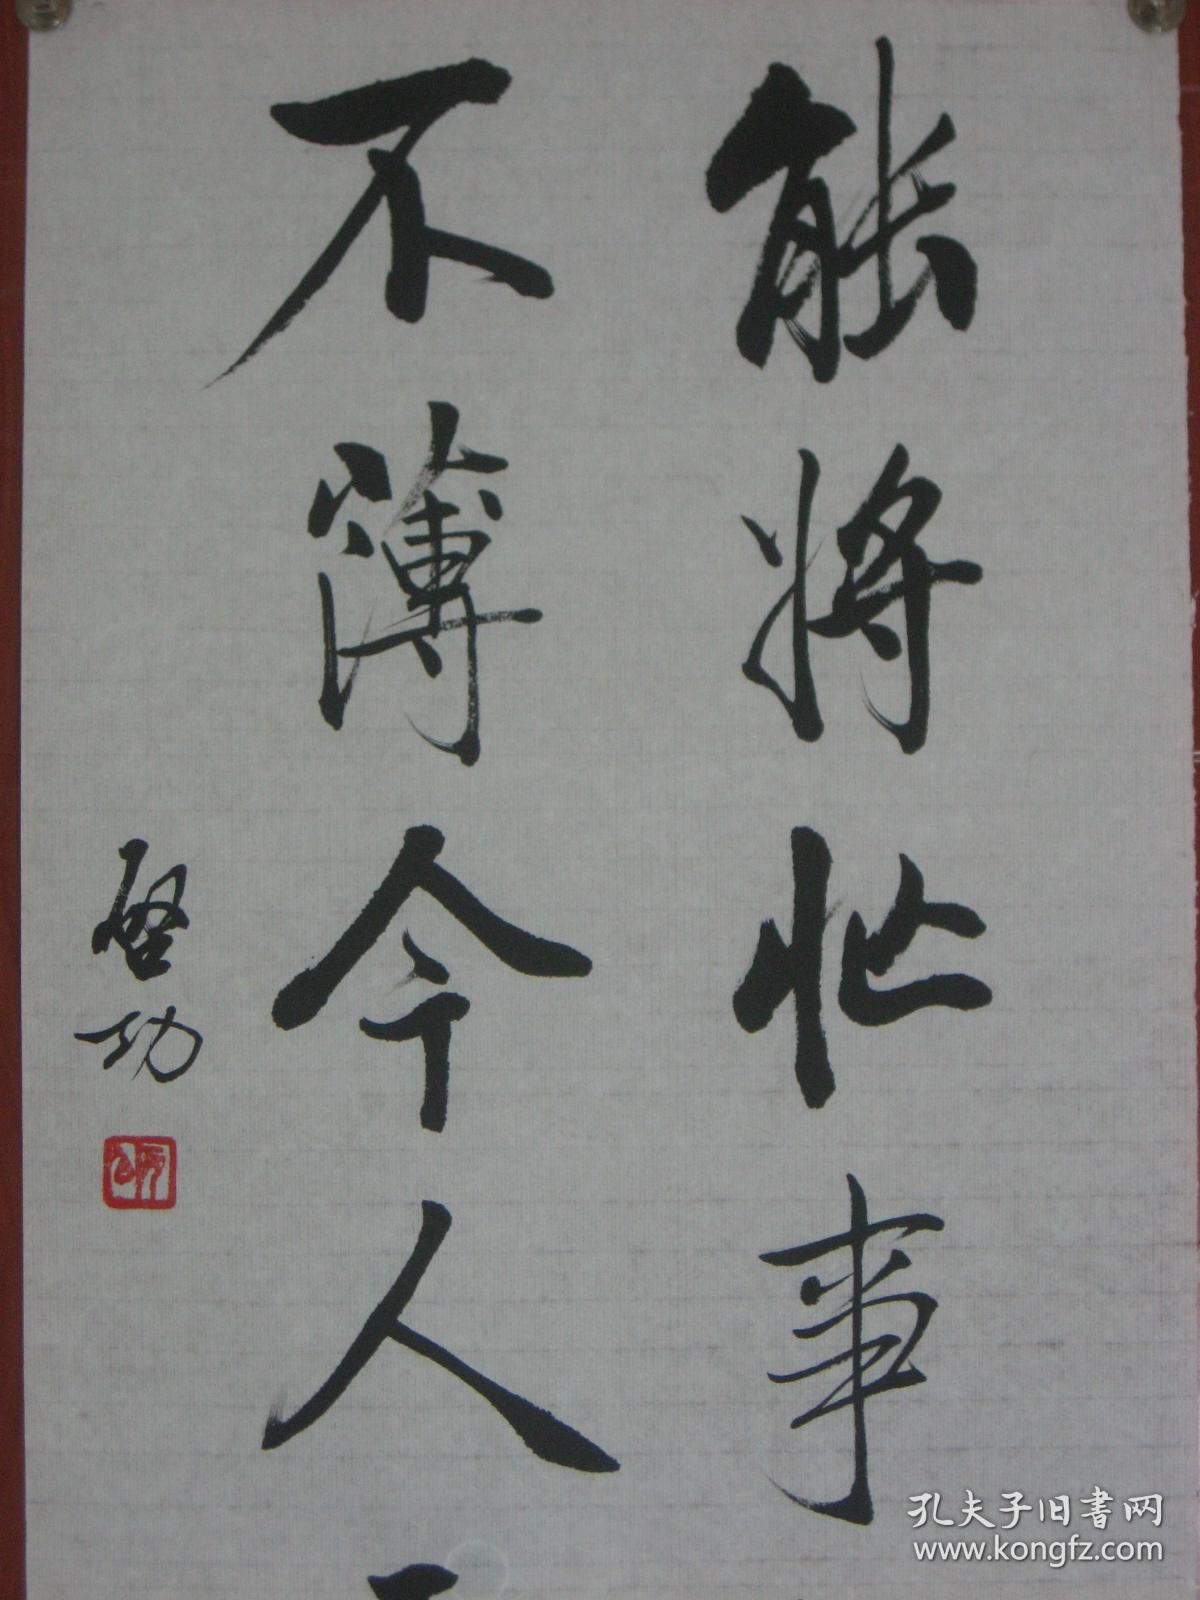 能将忙事
不薄今人
启功
孔夫子旧书网
www.kongfz.com